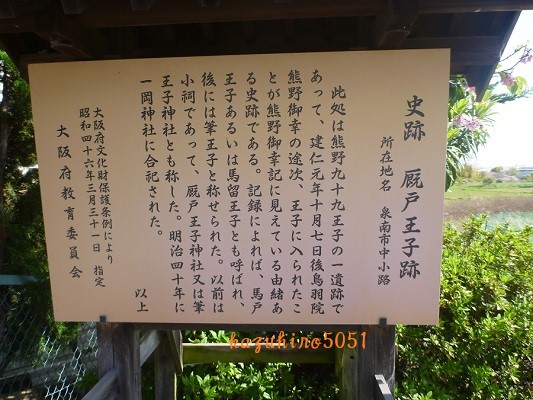 史跡 厩戸王子跡
所在地名 泉南市中小路
此処は熊野九十九王子の一遺跡で
あって、建仁元年十月七日後鳥羽院
熊野御幸の途次、王子に入られたこ
とが熊野御幸記に見えている由緒あ
る史跡である。記録によれば、馬戸
王子あるいは馬留王子とも呼ばれ、
後には筆王子と称せられた。以前は
小祠であって、厩戸王子神社又は筆
王子神社とも称した。明治四十年に
一岡神社に合祀された。
以上
大阪府文化財保護条例により
昭和四十六年三月三十一日 指定
大阪府教育委員会
kazuhiro5051